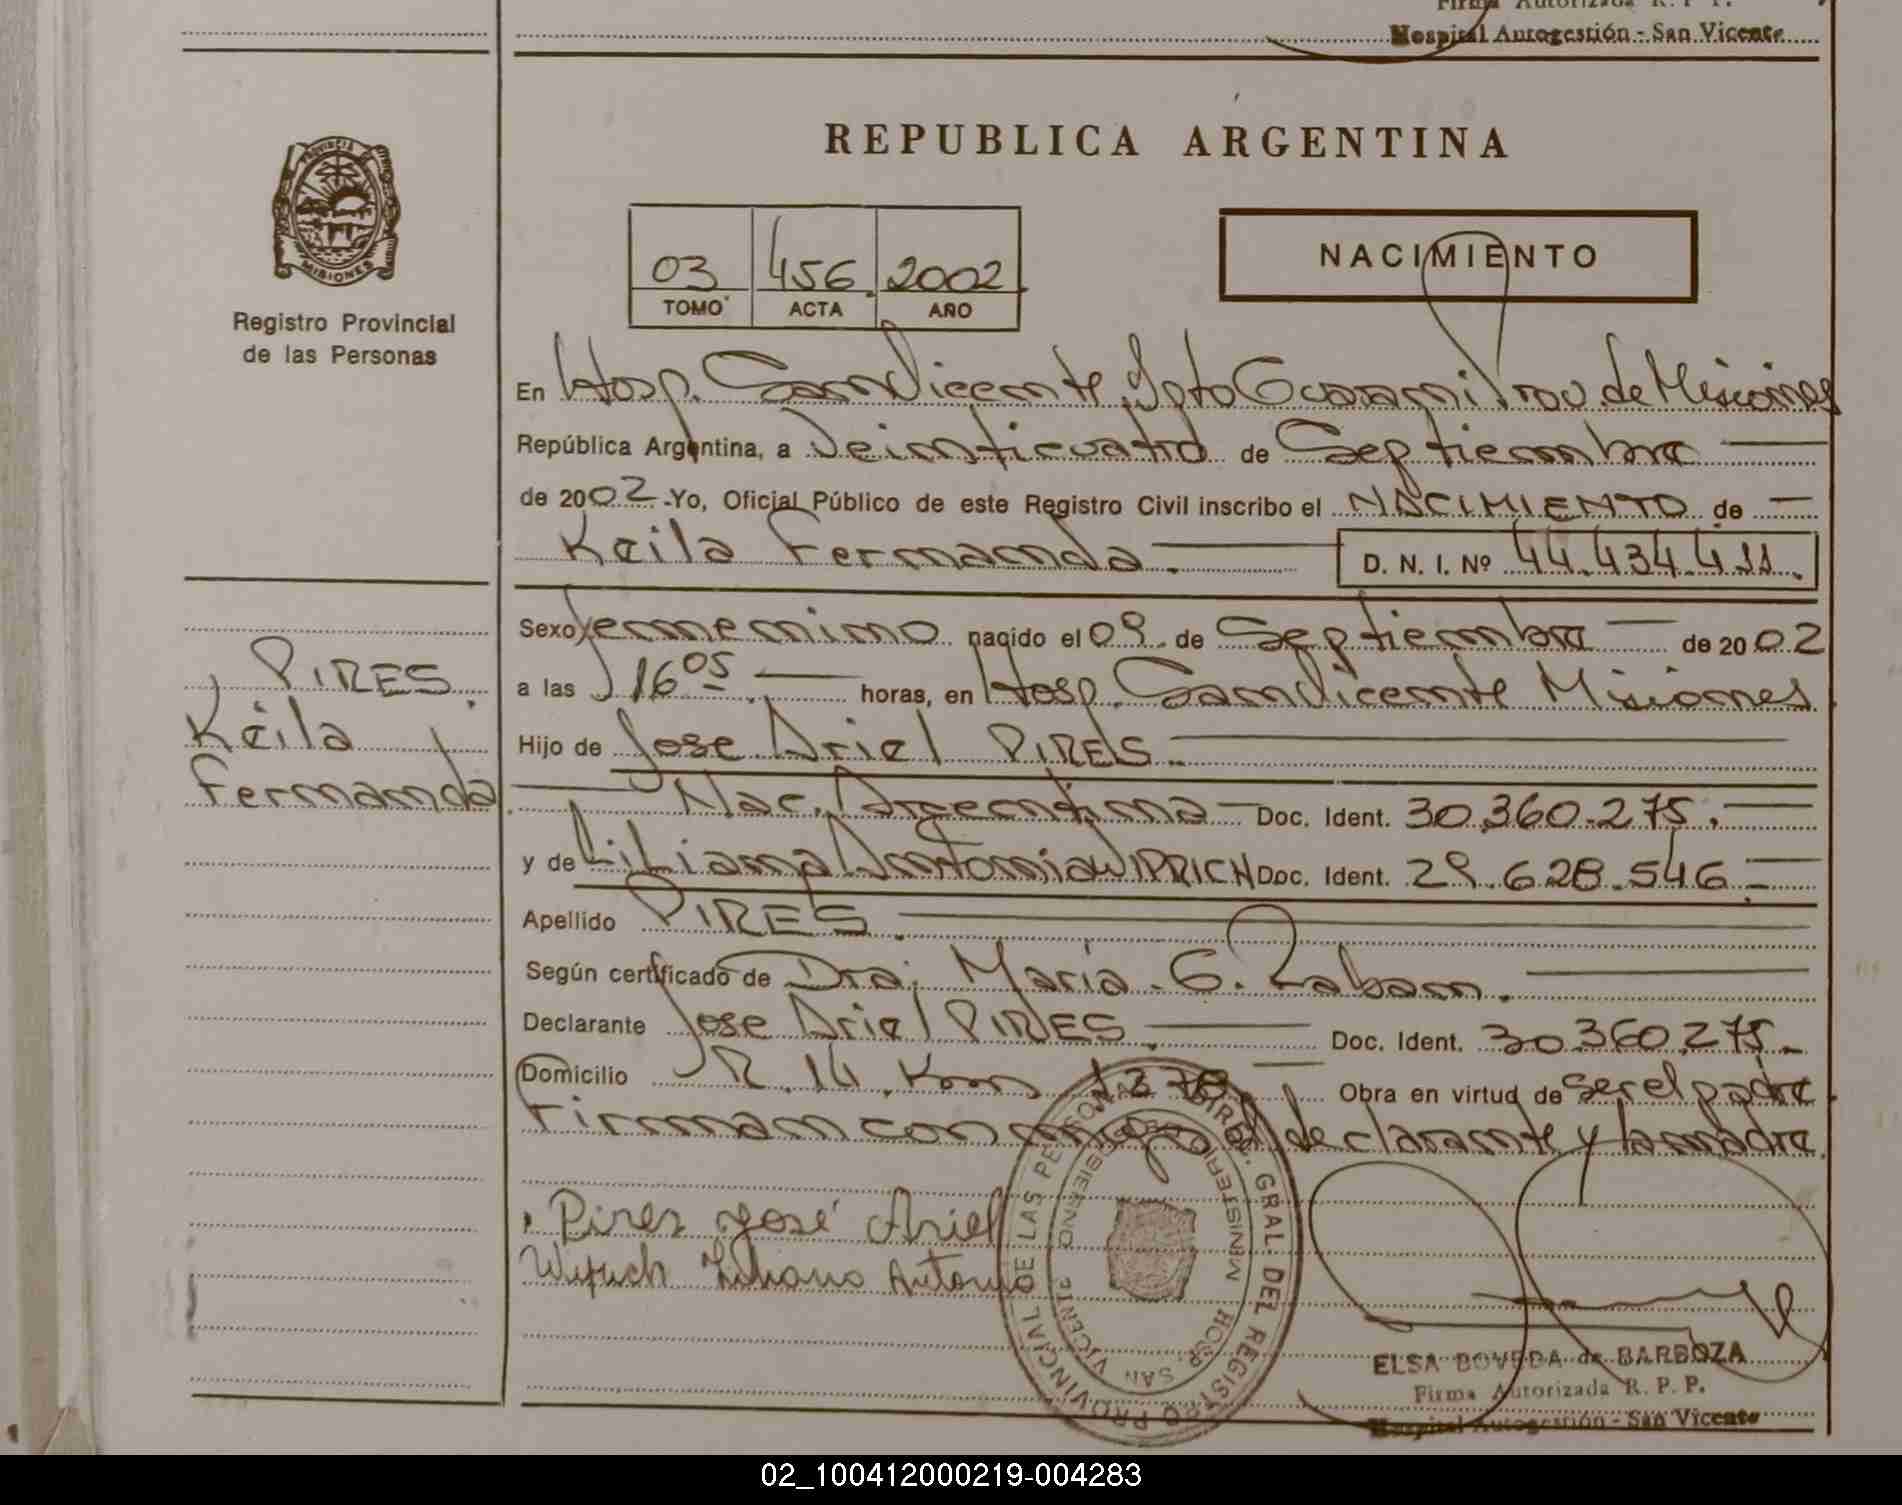 Firma Autorizada R. P. P.
Hospital Autogestión - San Vicente
PROVINCIA DE
MISIONES
Registro Provincial
de las Personas
REPUBLICA ARGENTINA
03 456. 2002.
TOMO ACTA AÑO
NACIMIENTO
En Hosp. San Vicente, Dpto Guarani Prov. de Misiones
República Argentina, a Veinticuatro de Septiembre
de 2002 - Yo, Oficial Público de este Registro Civil inscribo el NACIMIENTO de
Keila Fernanda. D. N. I. Nº 44.434.411.
Sexo femenino nacido el 09 de Septiembre de 2002
a las 16 05 horas, en Hosp. San Vicente Misiones
Hijo de Jose Ariel PIRES.
Nac. Argentina Doc. Ident. 30.360.275.
y de Liliana Antonia WIPRICH Doc. Ident. 29.628.546
Apellido PIRES.
Según certificado de Dra. María G. Laban.
Declarante Jose Ariel PIRES. Doc. Ident. 30360.275.
Domicilio R. 14. Km 1278 Obra en virtud de ser el padre
Firman con migo el declarante y la madre.
Pires José Ariel
Liliana Antonia
PIRES
Keila
Fernanda
DIREC. GRAL. DEL REGISTRO PROVINCIAL DE LAS PERSONAS
MINISTERIO DE GOBIERNO
HOSP. SAN VICENTE
ELSA BOVEDA de BARBOZA
Firma Autorizada R. P. P.
Hospital Autogestión - San Vicente
02_100412000219-004283